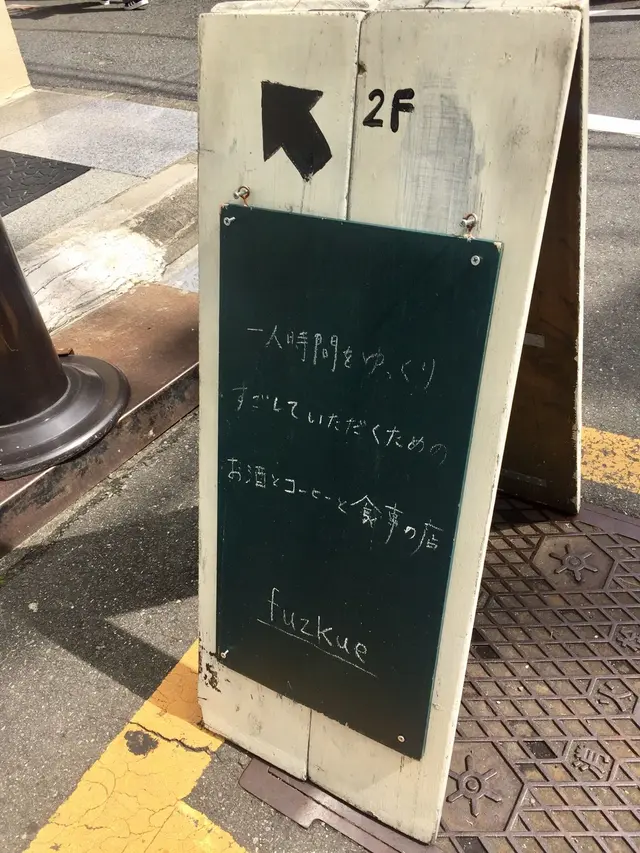 2F
一人時間をゆっくり
すごしていただくための
お酒とコーヒーと食事の店
fuzkue